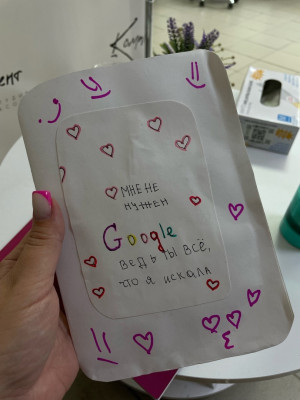 МНЕ НЕ
НУЖЕН
Google
ВЕДЬ ТЫ ВСЁ,
что я искала